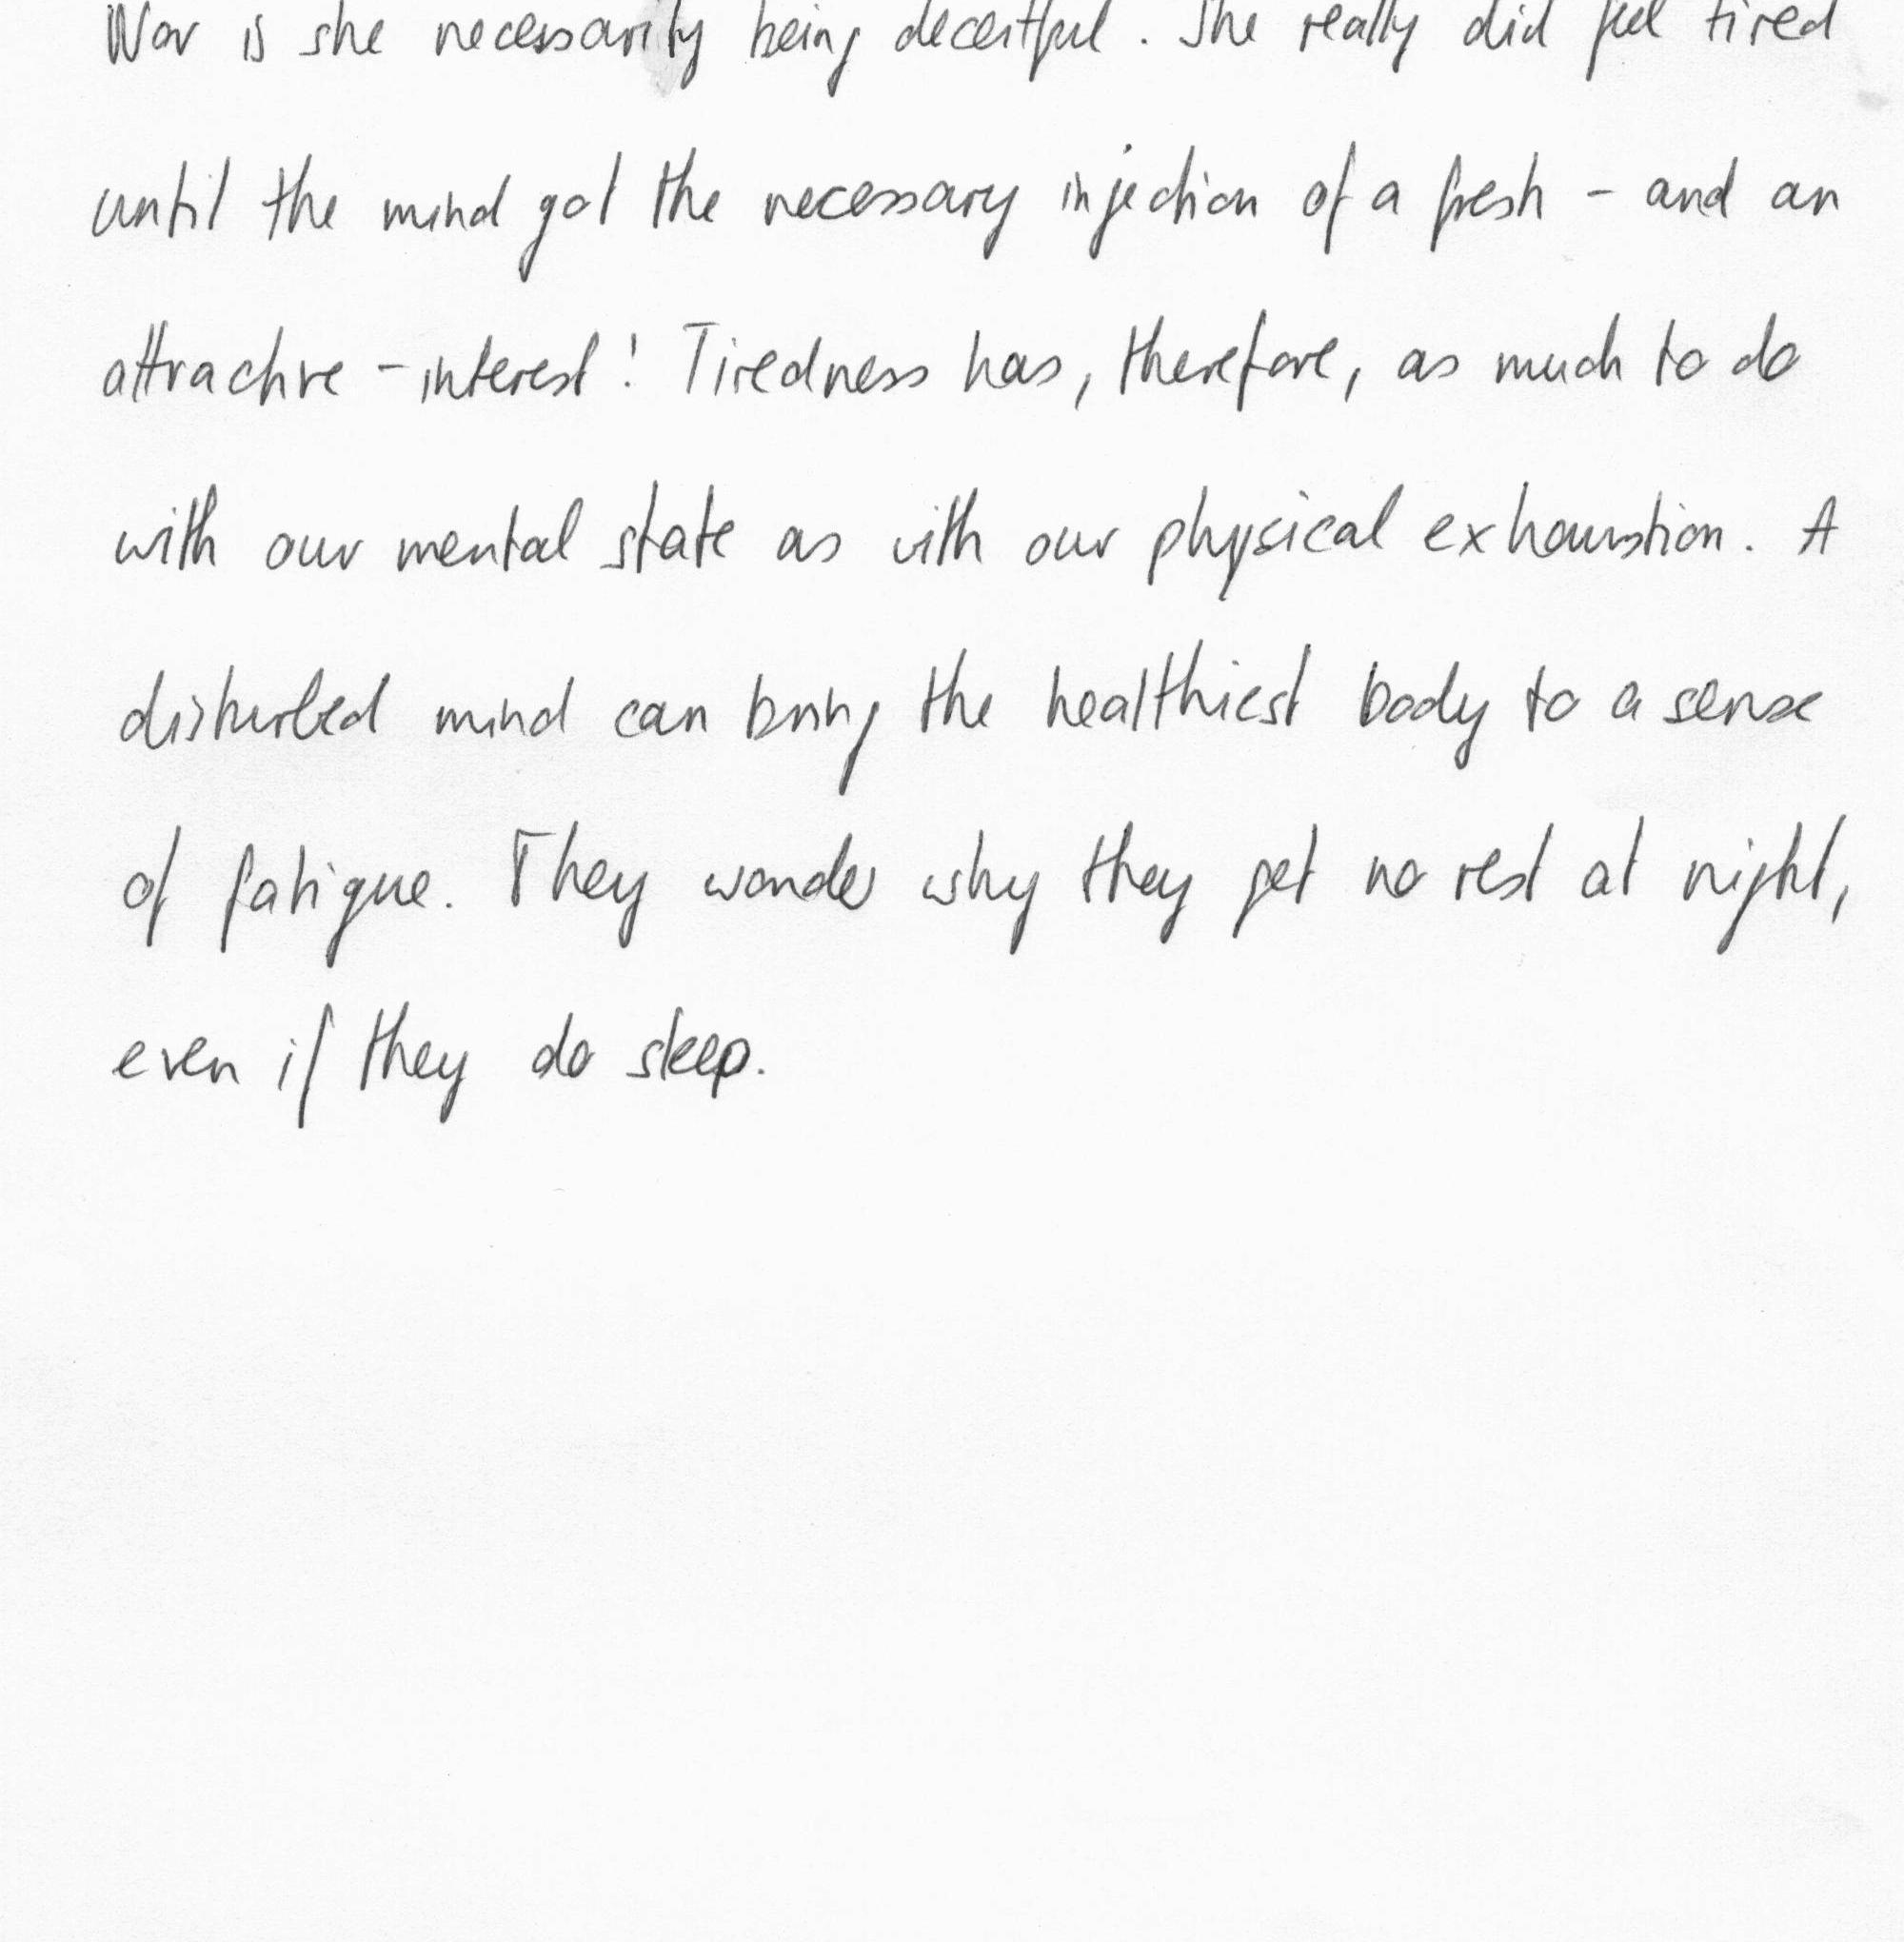 Nor is she necessarily being deceitful. She really did feel tired
until the mind got the necessary injection of a fresh - and an
attractive - interest! Tiredness has, therefore, as much to do
with our mental state as with our physical exhaustion. A
disturbed mind can bring the healthiest body to a sense
of fatigue. They wonder why they get no rest at night,
even if they do sleep.